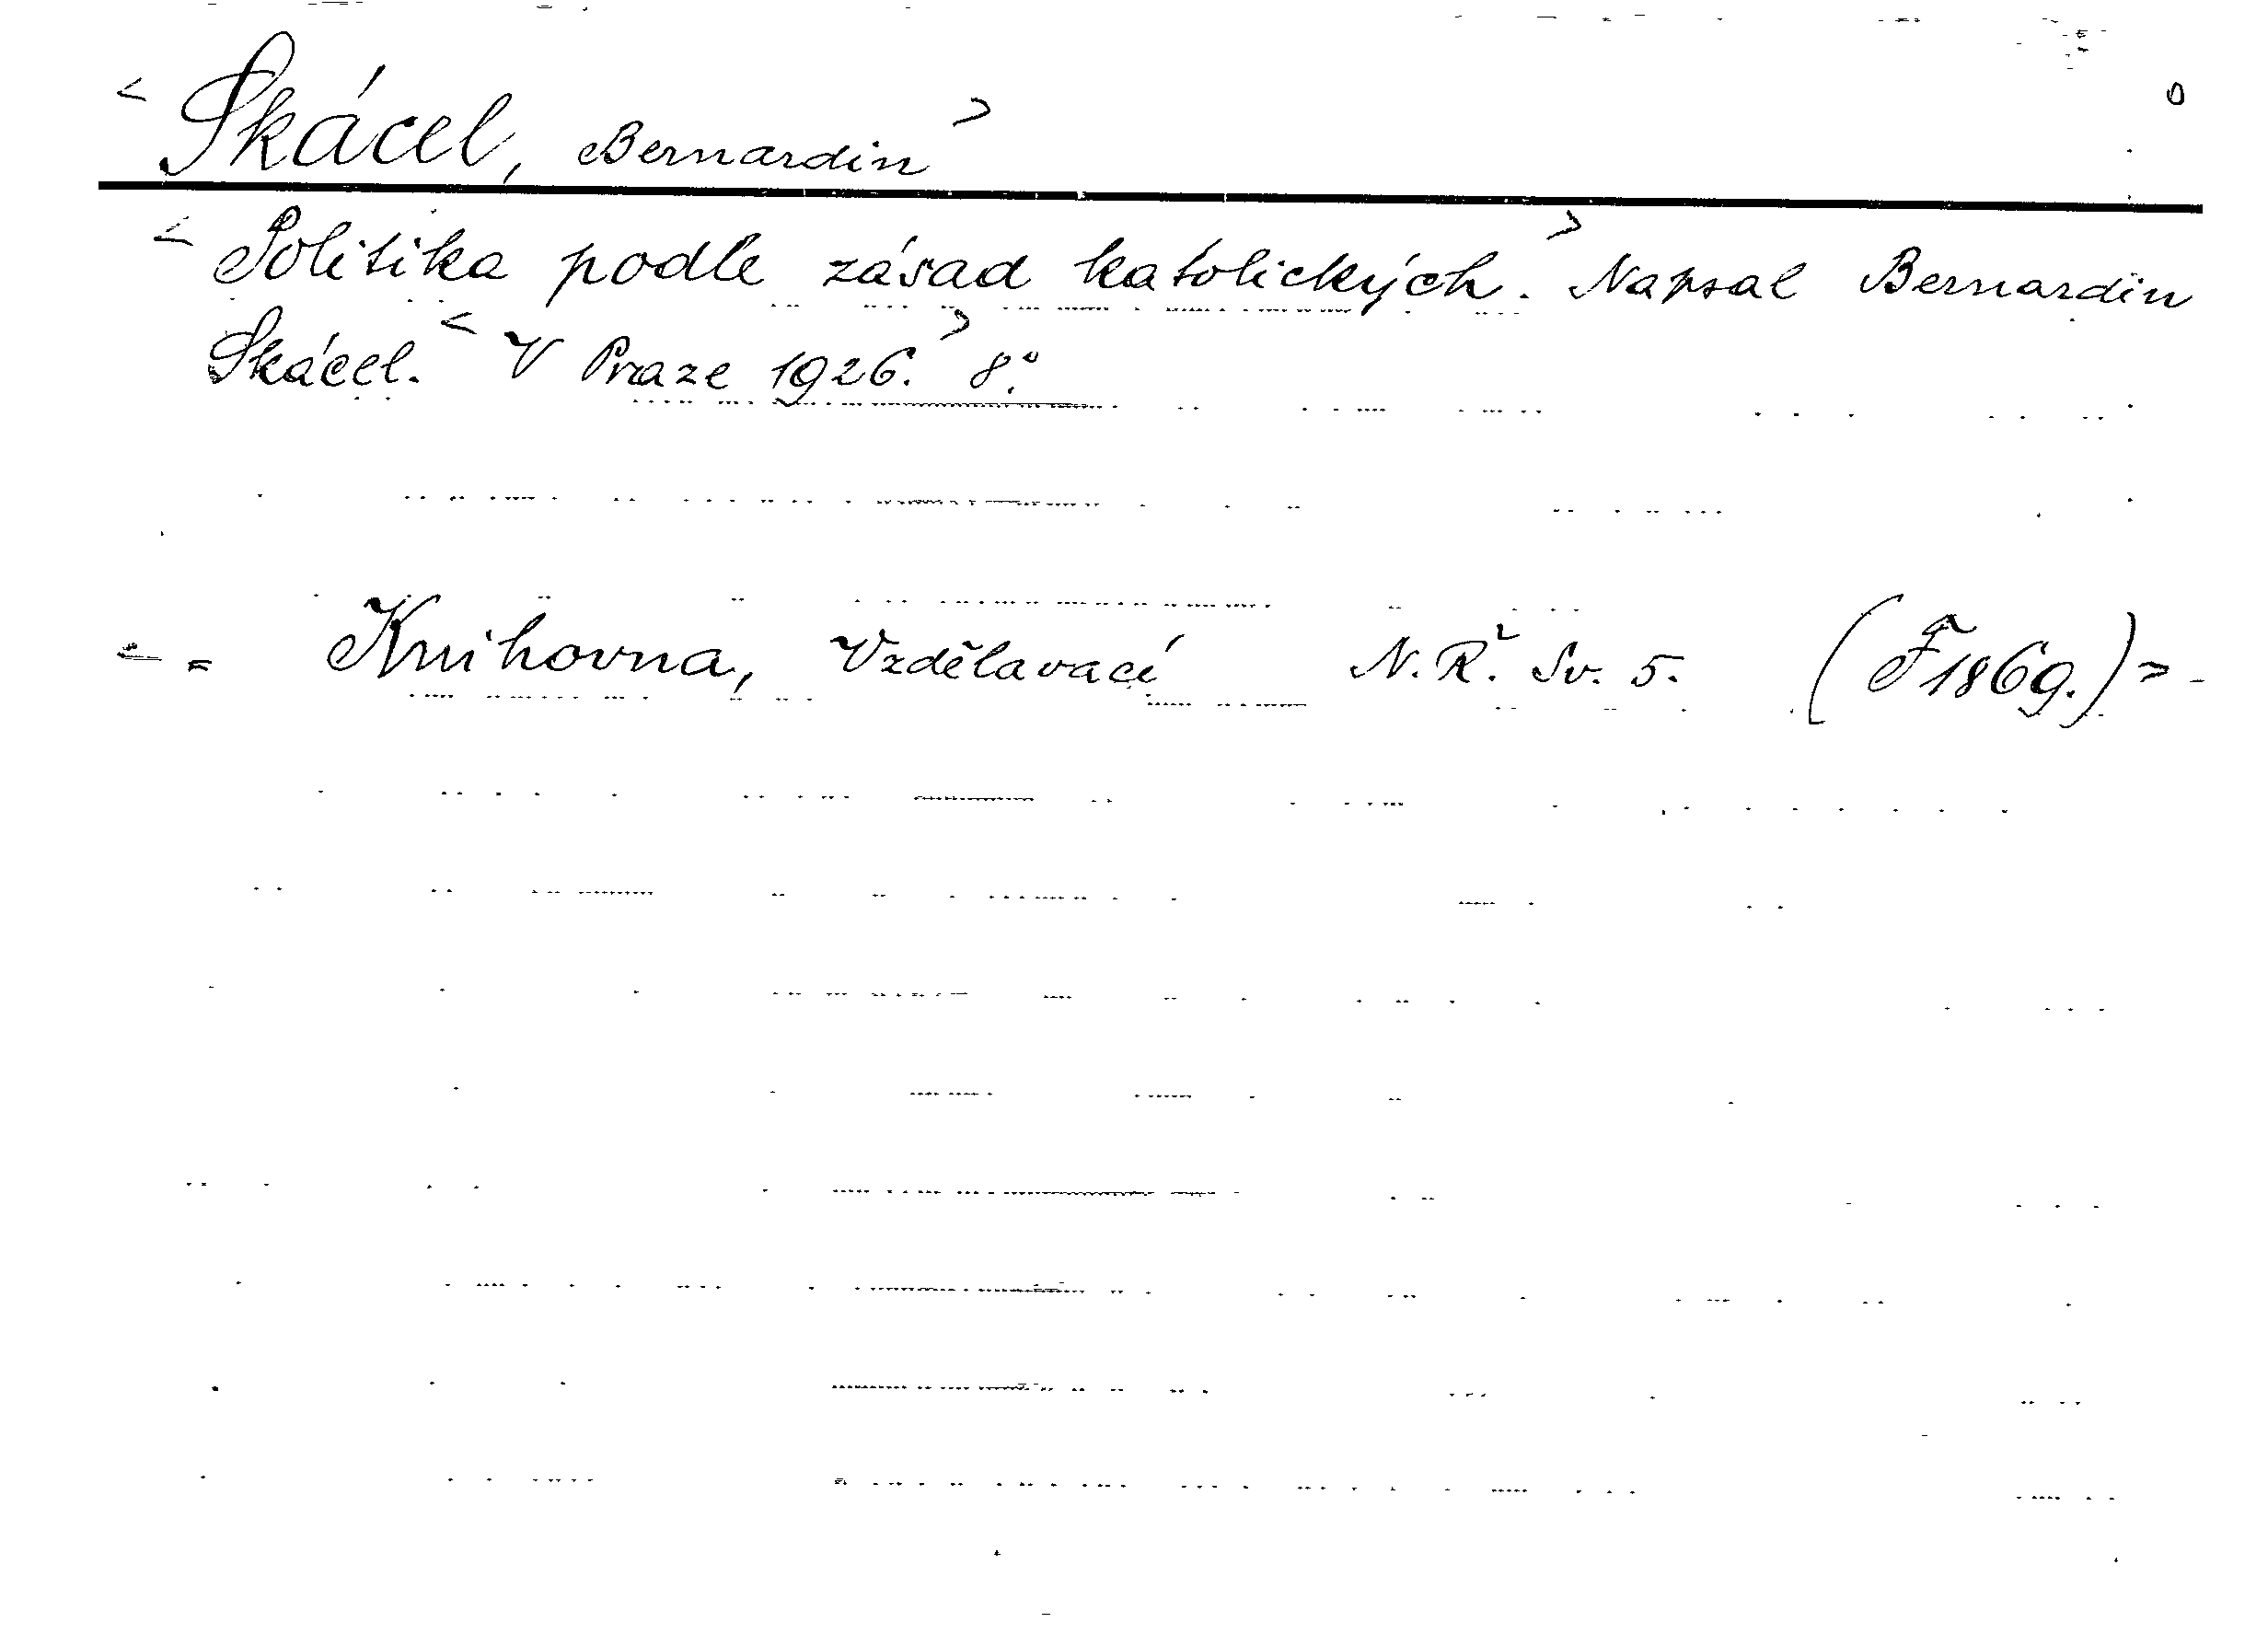 < Skácel, Bernardin > 0
< Politika podle zásad katolických. > Napsal Bernardin
Skácel. < V Praze 1926. > 8°.
< = Knihovna, Vzdělavací N. R.² Sv. 5. (F 1869.) >